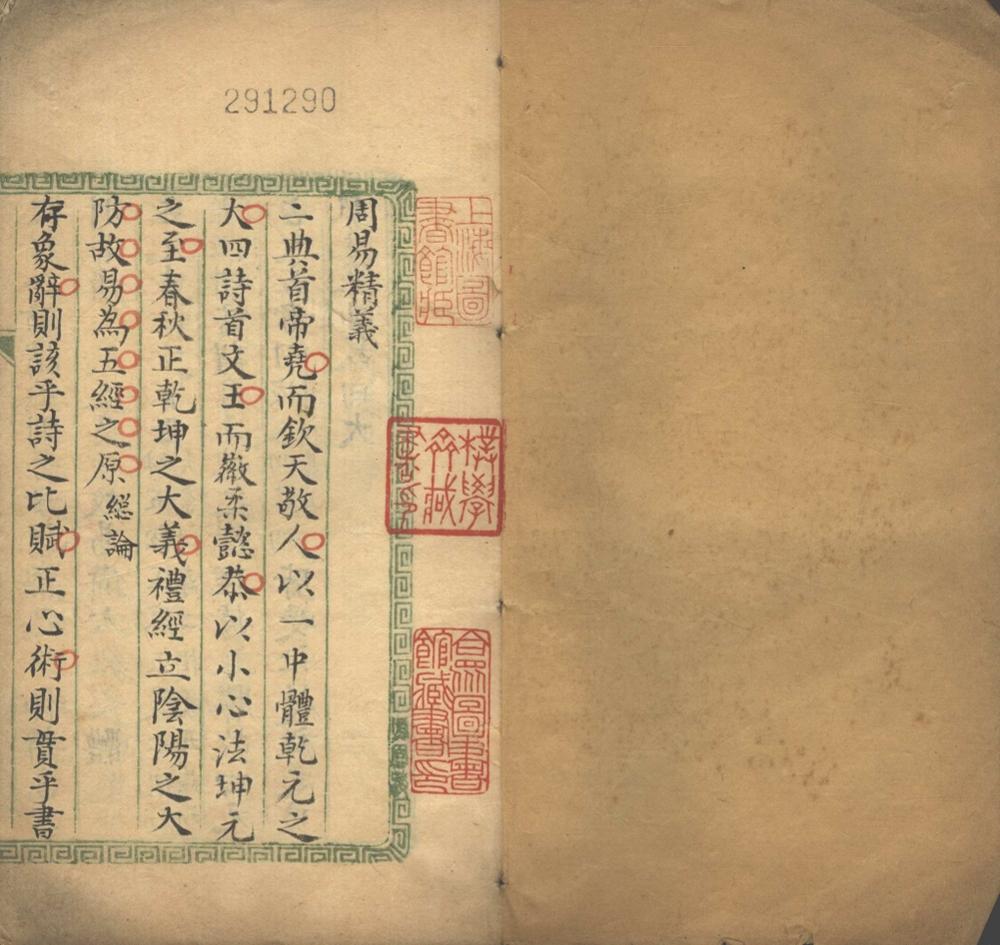 291290
周易精義
二典首帝堯而欽天敬人以一中體乾元之
大四詩首文王而徽柔懿恭以小心法坤元
之至春秋正乾坤之大義禮經立陰陽之大
防故易為五經之原 總論
存象辭則該乎詩之比賦正心術則貫乎書
上海圖
書館藏
樸學
齋藏
合眾圖書
館藏書印